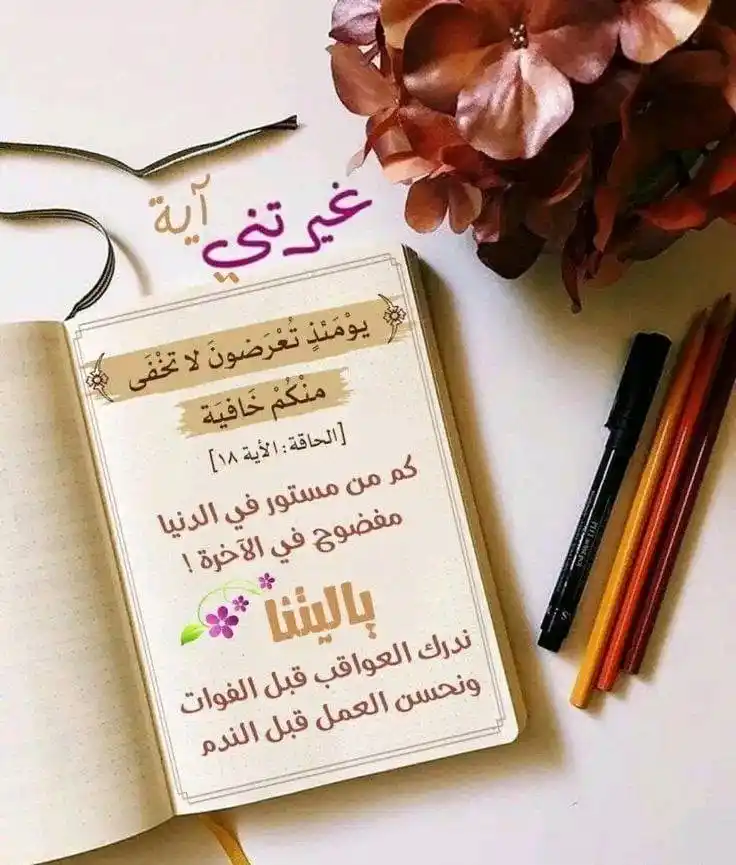 آية
غيرتني
يوْمَئذٍ تُعْرَضونَ لا تخْفَى
منْكُمْ خَافيَة
[الحاقة: الأية ١٨]
كم من مستور في الدنيا
مفضوح في الآخرة !
ياليتنا
ندرك العواقب قبل الفوات
ونحسن العمل قبل الندم